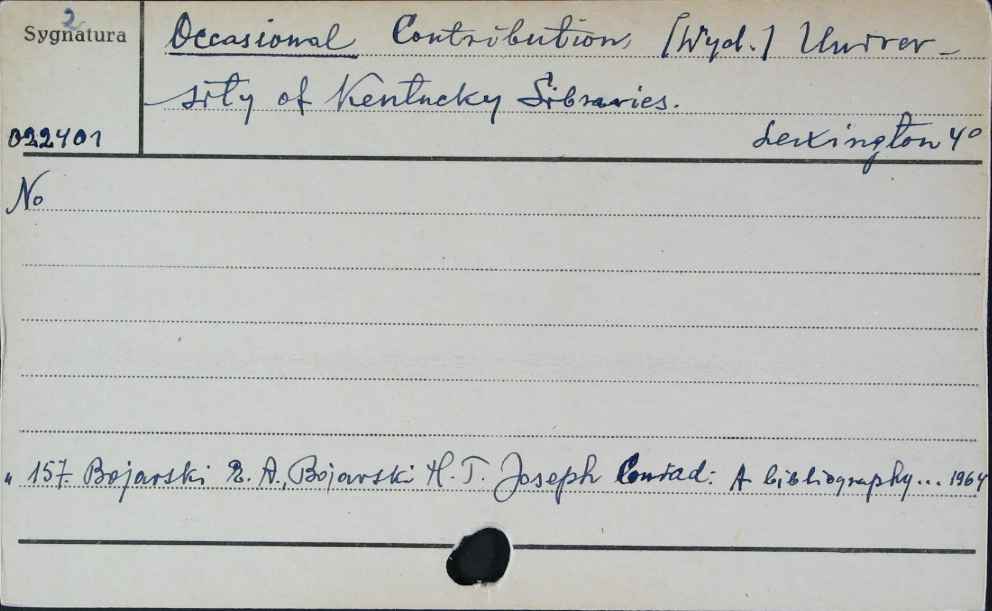 2
Sygnatura
022401
Occasional Contributions [Wyd.] Univer-
sity of Kentucky Libraries.
Lexington 4°
No
" 157. Bojarski E. A., Bojarski H. T. Joseph Conrad: A bibliography... 1964